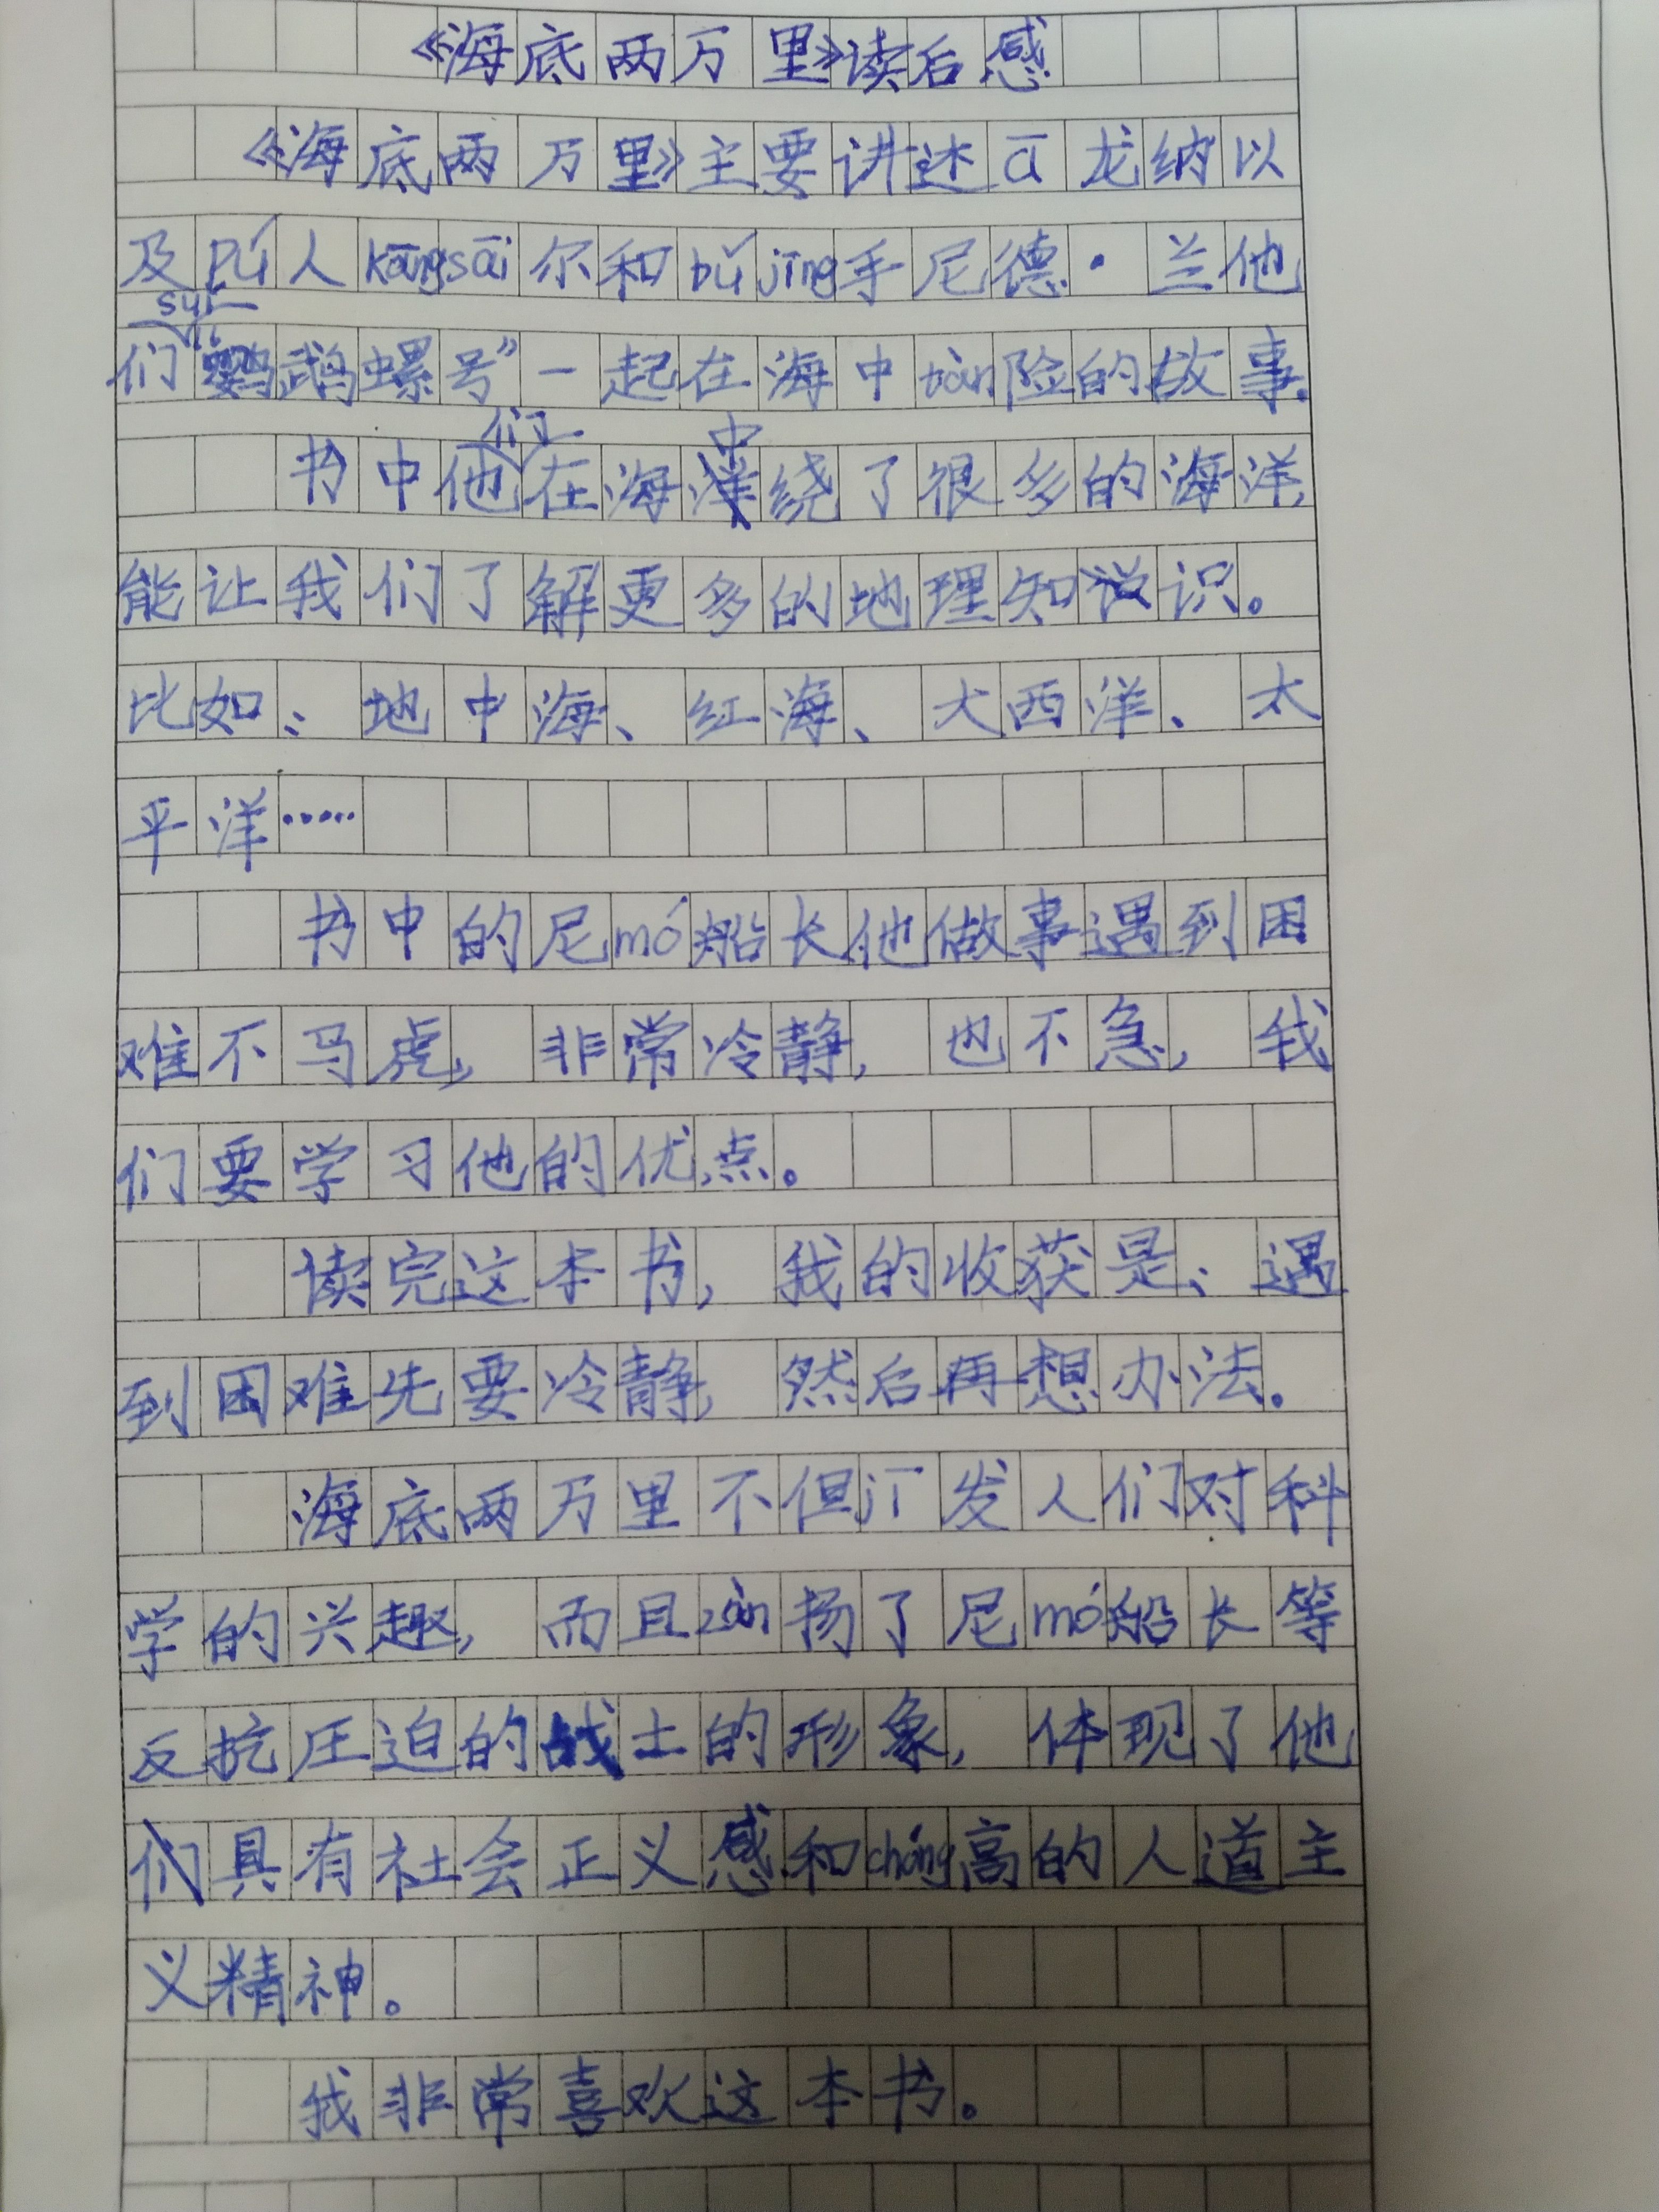 《海底两万里》读后感
《海底两万里》主要讲述ā龙纳以
及pú人kāngsāi尔和bǔjīng手尼德·兰他
suí
们“鹦鹉螺号”一起在海中tàn险的故事。
们 中
书中他在海洋绕了很多的海洋,
能让我们了解更多的地理知识。
比如、地中海、红海、大西洋、太
平洋……
书中的尼mó船长他做事遇到困
难不马虎,非常冷静,也不急,我
们要学习他的优点。
读完这本书,我的收获是、遇
到困难先要冷静,然后再想办法。
海底两万里不但jī发人们对科
学的兴趣,而且zàn扬了尼mó船长等
反抗压迫的战士的形象,体现了他
们具有社会正义感和chóng高的人道主
义精神。
我非常喜欢这本书。